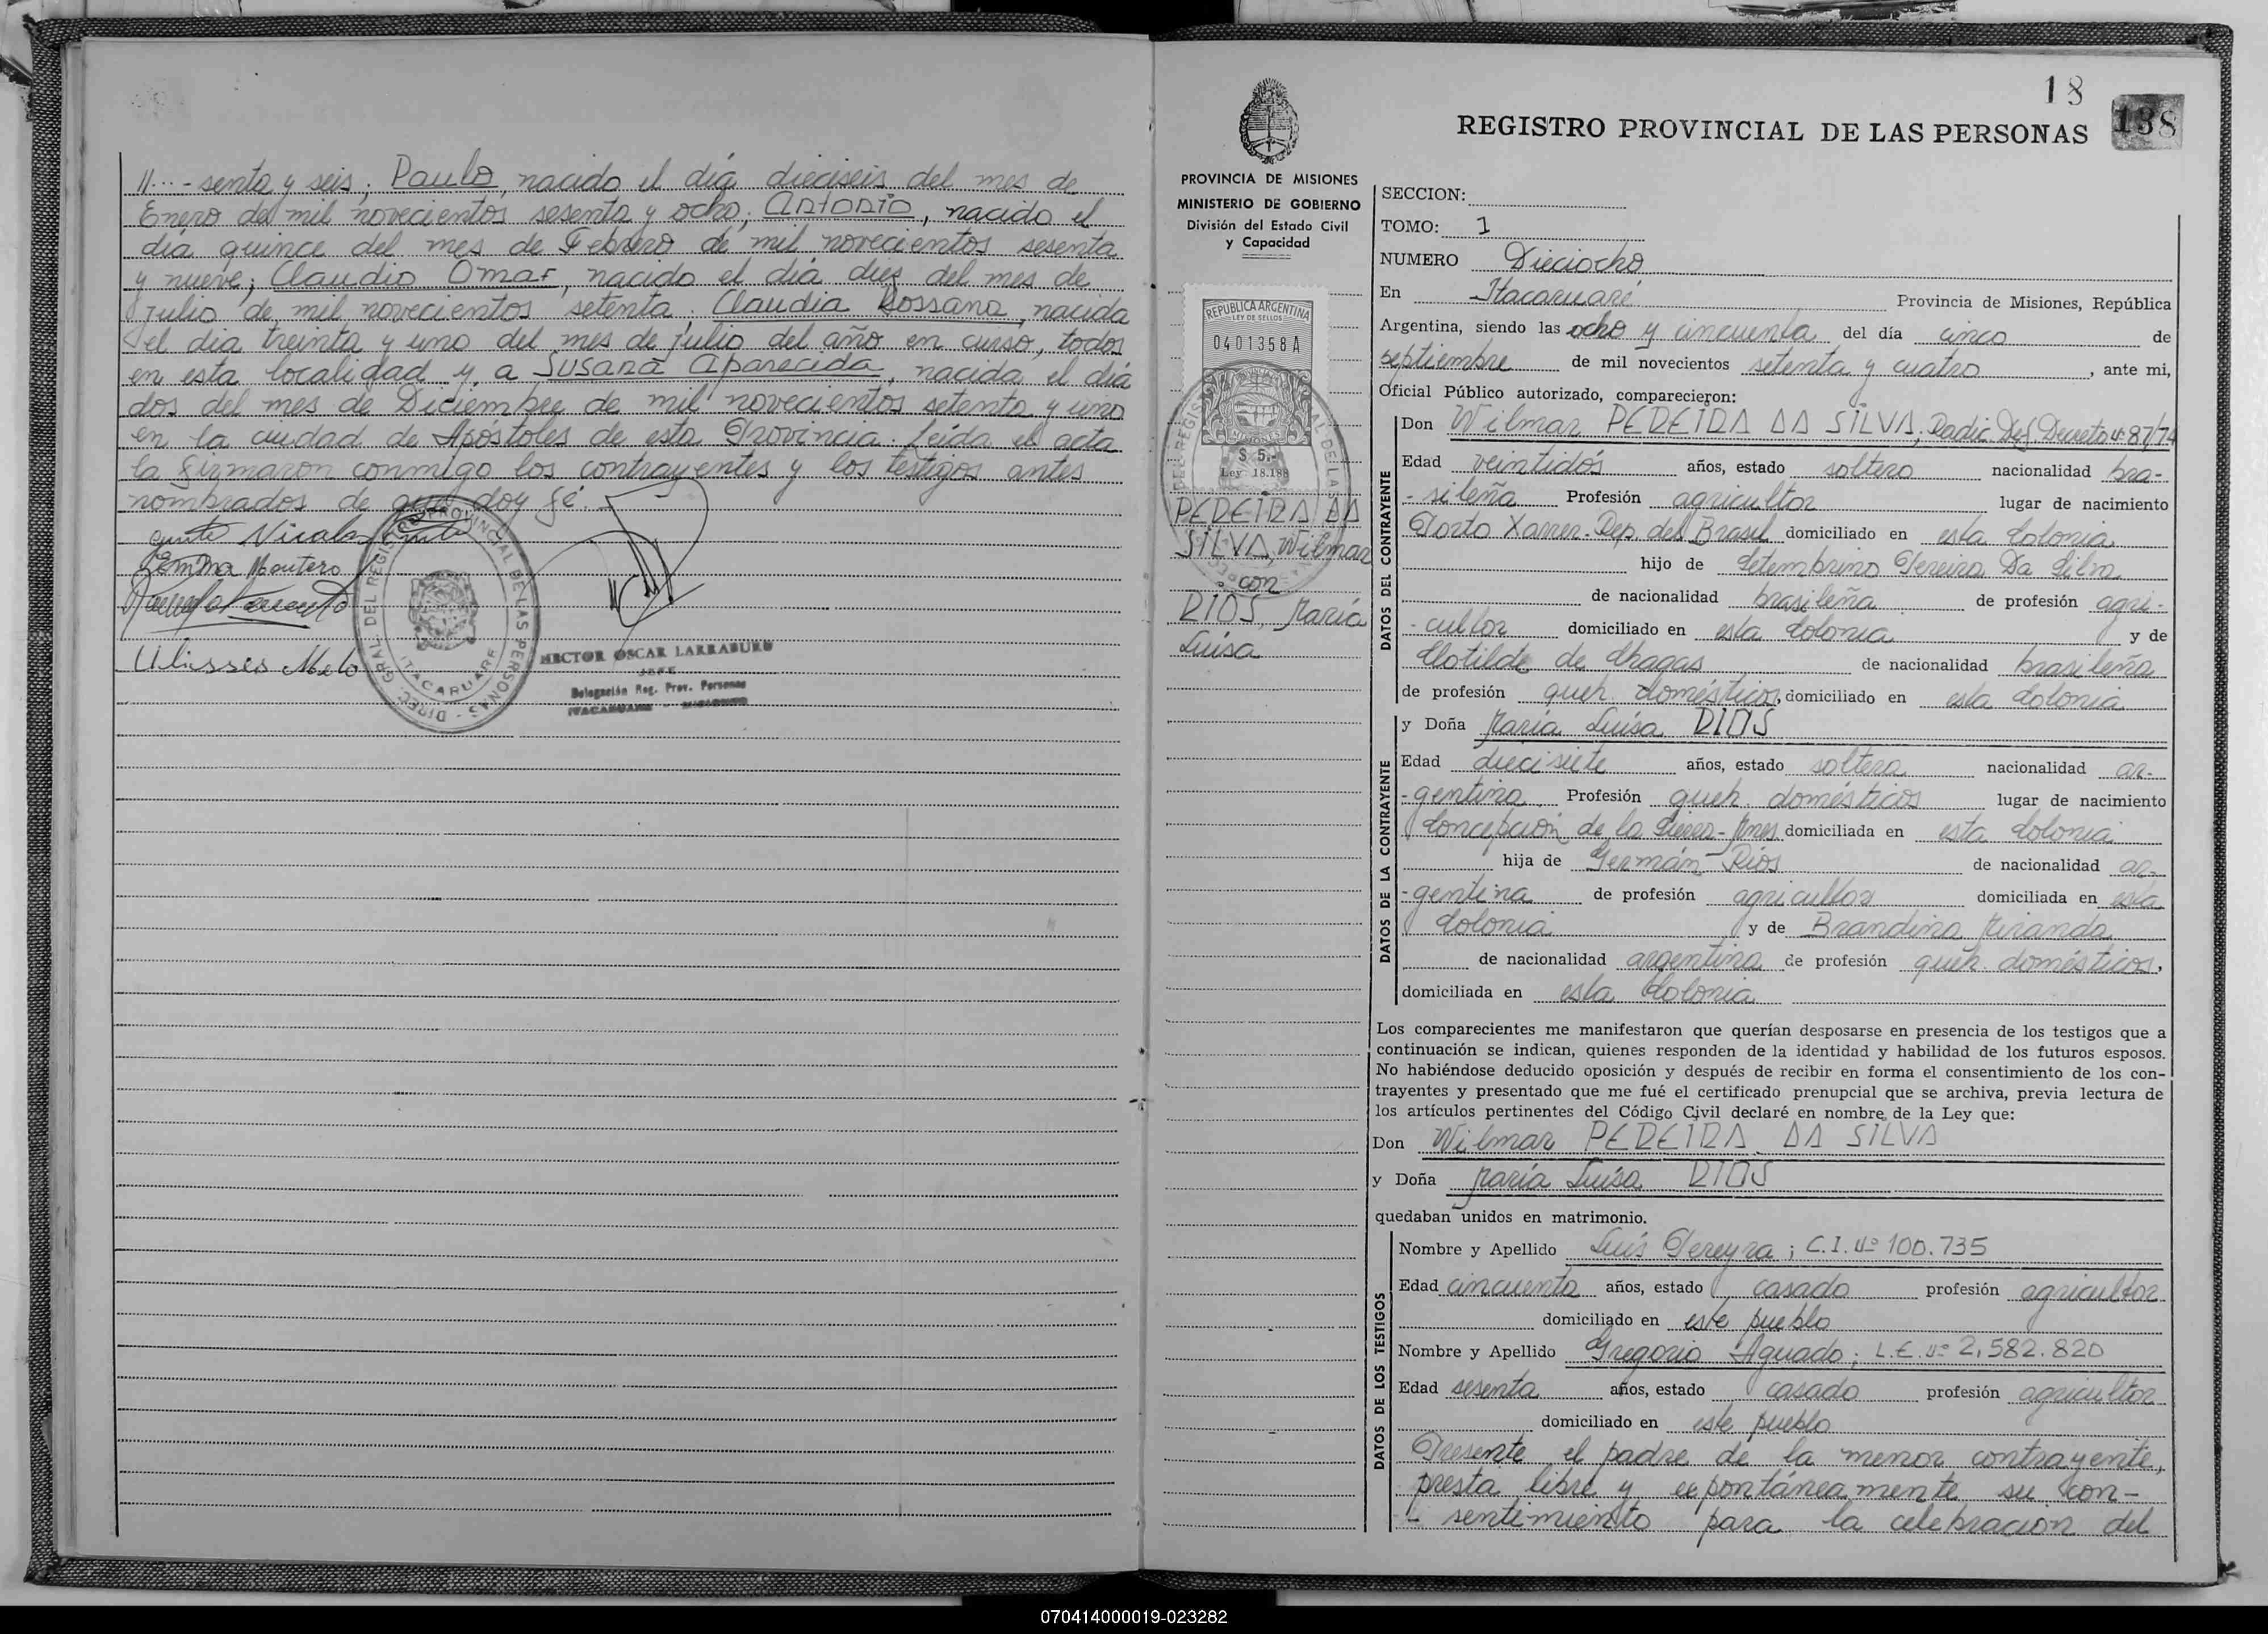 //...- senta y seis; Paulo, nacido el día dieciseis del mes de
Enero de mil novecientos sesenta y ocho; Antonio, nacido el
día quince del mes de Febrero de mil novecientos sesenta
y nueve; Claudio Omar, nacido el día diez del mes de
julio de mil novecientos setenta; Claudia Rossana, nacida
el día treinta y uno del mes de julio del año en curso, todos
en esta localidad y, a Susana Aparecida, nacida el día
dos del mes de Diciembre de mil novecientos setenta y uno
en la ciudad de Apóstoles de esta Provincia. Leída el acta
la firmaron conmigo los contrayentes y los testigos antes
nombrados de que doy fé.-
Nicolas
Gemma Montero
Ulisses Melo
DIREC. GRAL. DEL REGISTRO PROVINCIAL DE LAS PERSONAS -
ITACARUARE
HECTOR OSCAR LARRABURU
JEFE
Delegación Reg. Prov. Personas
ITACARUARE - MISIONES
18
138
REGISTRO PROVINCIAL DE LAS PERSONAS
PROVINCIA DE MISIONES
MINISTERIO DE GOBIERNO
División del Estado Civil
y Capacidad
REPUBLICA ARGENTINA
LEY DE SELLOS
0401358A
MISIONES
$ 5.-
Ley 18.188
PEREIRA DA
SILVA, Wilmar
con
RIOS, María
Luisa
SECCION:
TOMO: 1
NUMERO Dieciocho
En Itacaruaré Provincia de Misiones, República
Argentina, siendo las ocho y cincuenta del día cinco de
septiembre de mil novecientos setenta y cuatro, ante mi,
Oficial Público autorizado, comparecieron:
DATOS DEL CONTRAYENTE
Don Wilmar PEREIRA DA SILVA, Radic. Def. Decreto nº 87/74
Edad veintidós años, estado soltero nacionalidad bra-
-sileña Profesión agricultor lugar de nacimiento
Porto Xavier-Rep. del Brasil domiciliado en esta Colonia
hijo de Setembrino Pereira Da Silva
de nacionalidad brasileña de profesión agri-
-cultor domiciliado en esta Colonia y de
Clotilde de Chagas de nacionalidad brasileña
de profesión queh. domésticos, domiciliado en esta Colonia
DATOS DE LA CONTRAYENTE
y Doña María Luisa RIOS
Edad diecisiete años, estado soltera nacionalidad ar-
-gentina Profesión queh. domésticos lugar de nacimiento
Concepción de la Sierra-Mnes. domiciliada en esta Colonia
hija de Germán Rios de nacionalidad ar-
-gentina de profesión agricultor domiciliada en esta
Colonia y de Brandina Miranda
de nacionalidad argentina de profesión queh. domésticos,
domiciliada en esta Colonia
Los comparecientes me manifestaron que querían desposarse en presencia de los testigos que a
continuación se indican, quienes responden de la identidad y habilidad de los futuros esposos.
No habiéndose deducido oposición y después de recibir en forma el consentimiento de los con-
trayentes y presentado que me fué el certificado prenupcial que se archiva, previa lectura de
los artículos pertinentes del Código Civil declaré en nombre de la Ley que:
Don Wilmar PEREIRA DA SILVA
y Doña María Luisa RIOS
quedaban unidos en matrimonio.
DATOS DE LOS TESTIGOS
Nombre y Apellido Luis Pereyra; C.I. nº 100.735
Edad cincuenta años, estado casado profesión agricultor
domiciliado en este pueblo
Nombre y Apellido Gregorio Aguado; L.E. nº 2.582.820
Edad sesenta años, estado casado profesión agricultor
domiciliado en este pueblo
Presente el padre de la menor contrayente,
presta libre y espontáneamente su con-
- sentimiento para la celebración del
070414000019-023282